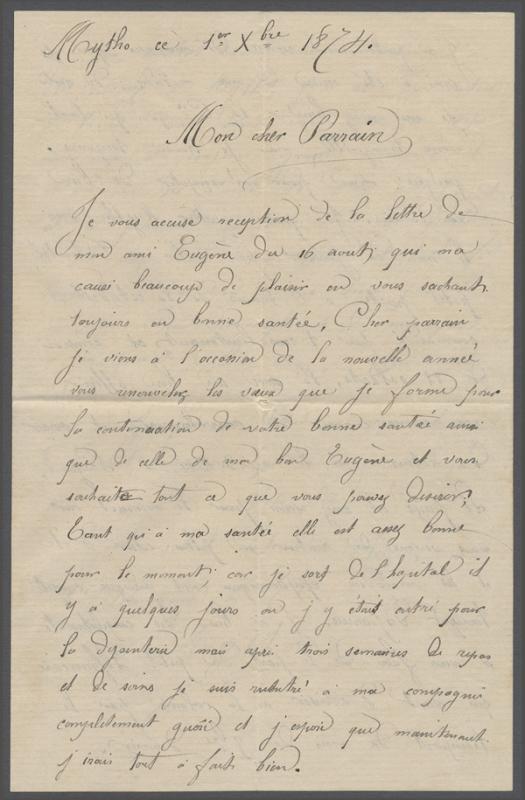 Mytho ce 1er Xbre 1874.
Mon cher Parrain
Je vous accuse reception de la lettre de
mon ami Eugène du 16 aout, qui ma
causé beaucoup de plaisir en vous sachant
toujours en bonne santée, Cher parrain
je viens à l'occasion de la nouvelle année
vous renouveler les vœux que je forme pour
la continuation de votre bonne santée ainsi
que de celle de mon bon Eugène et vous
souhaite tout ce que vous pouvez désirer;
Tant qu'à ma santée elle est assez bonne
pour le moment, car je sort de l'hopital il
y a quelques jours ou j y étais entré pour
la dysenterie mais après trois semaines de repos
et de soins je suis rentré à ma compagnie
complètement guérie et j'espère que maintenant
j'irais tout à fait bien.